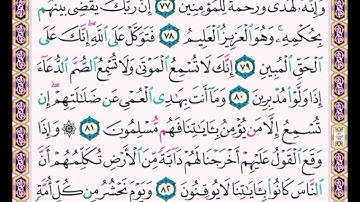 وَإِنَّهُۥ لَهُدًى وَرَحْمَةٌ لِّلْمُؤْمِنِينَ ٧٧ إِنَّ رَبَّكَ يَقْضِى بَيْنَهُم
بِحُكْمِهِۦ وَهُوَ ٱلْعَزِيزُ ٱلْعَلِيمُ ٧٨ فَتَوَكَّلْ عَلَى ٱللَّهِ إِنَّكَ عَلَى
ٱلْحَقِّ ٱلْمُبِينِ ٧٩ إِنَّكَ لَا تُسْمِعُ ٱلْمَوْتَىٰ وَلَا تُسْمِعُ ٱلصُّمَّ ٱلدُّعَآءَ
إِذَا وَلَّوْا۟ مُدْبِرِينَ ٨٠ وَمَآ أَنتَ بِهَٰدِى ٱلْعُمْىِ عَن ضَلَٰلَتِهِمْ إِن
تُسْمِعُ إِلَّا مَن يُؤْمِنُ بِـَٔايَٰتِنَا فَهُم مُّسْلِمُونَ ٨١ ۞ وَإِذَا
وَقَعَ ٱلْقَوْلُ عَلَيْهِمْ أَخْرَجْنَا لَهُمْ دَآبَّةً مِّنَ ٱلْأَرْضِ تُكَلِّمُهُمْ أَنَّ
ٱلنَّاسَ كَانُوا۟ بِـَٔايَٰتِنَا لَا يُوقِنُونَ ٨٢ وَيَوْمَ نَحْشُرُ مِن كُلِّ أُمَّةٍ